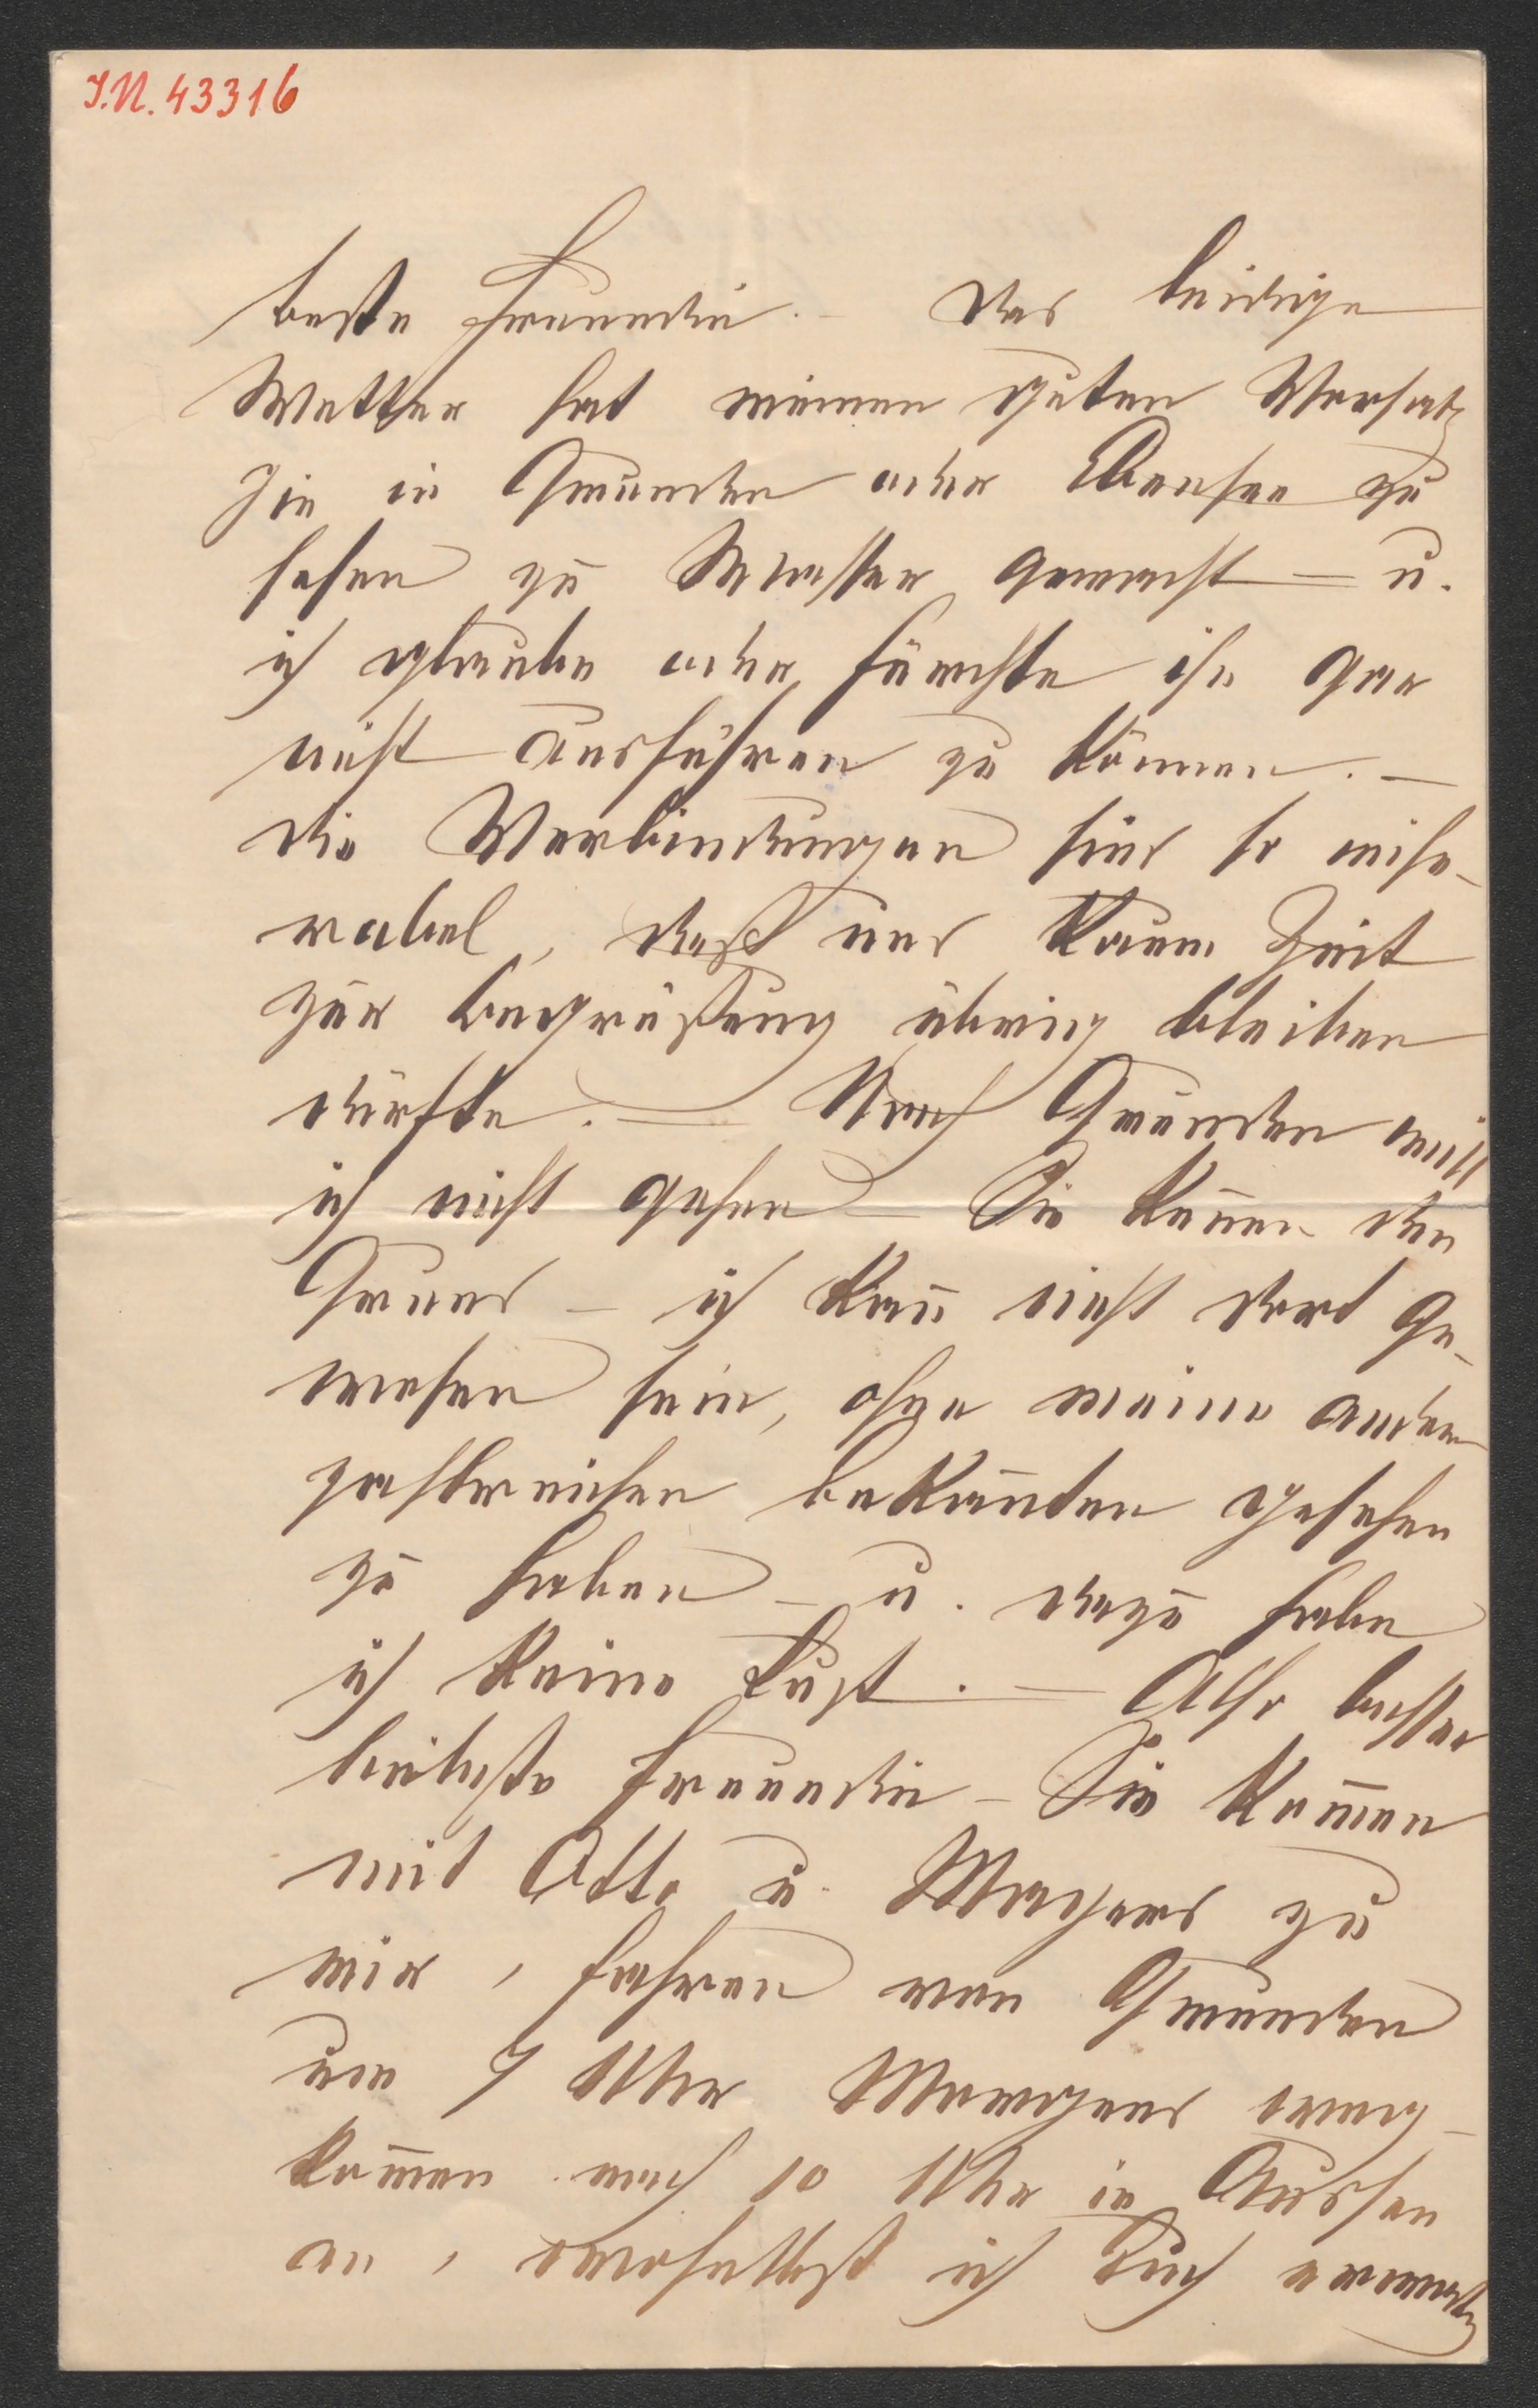 I.N. 43316
beste Freundin. – das leidige
Wetter hat meinen guten Vorsatz
Sie in Gmunden oder Ebensee zu
sehen zu Wasser gemacht – u.
ich glaube oder fürchte ihn gar
nicht ausführen zu können. –
die Verbindungen sind so mise-
rabel, daß uns kaum Zeit
zur begrüßung übrig bleiben
dürfte. – Nach Gmunden will
ich nicht gehen – Sie kennen den
Grund – ich kan̄ nicht dort ge-
wesen sein, ohne meine andern
zahlreichen bekan̄ten gesehen
zu haben – u. dazu habe
ich keine Lust. – Also besser
liebste Freundin – Sie kom̄en
mit Otto u. Mayers zu
mir, fahren von Gmunden
um 7 Uhr Morgens weg –
kom̄en nach 10 Uhr in Aussee
an, woselbst ich Euch erwarte